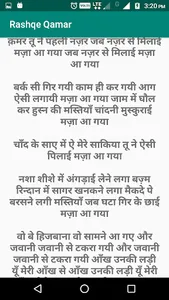 3:20 PM
Rashqe Qamar
क़मर तू ने पहली नज़र जब नज़र से मिलाई
मज़ा आ गया जब नज़र से मिलाई मज़ा
आ गया
बर्क सी गिर गयी काम ही कर गयी आग
ऐसी लगायी मज़ा आ गया जाम में घौल
कर हुस्न की मस्तियाँ चांदनी मुस्कुराई
मज़ा आ गया
चाँद के साए में ऐ मेरे साकिया तू ने ऐसी
पिलाई मज़ा आ गया
नशा शीशे में अंगड़ाई लेने लगा बज़्म
रिन्दान में सागर खनकने लगा मैकदे पे
बरसने लगी मस्तियाँ जब घटा गिर के छाई
मज़ा आ गया
वो बे हिजबाना वो सामने आ गए और
जवानी जवानी से टकरा गयी और जवानी
जवानी से टकरा गयी आँख उनकी लड़ी
यूँ मेरी आँख से आँख उनकी लड़ी यूँ मेरी